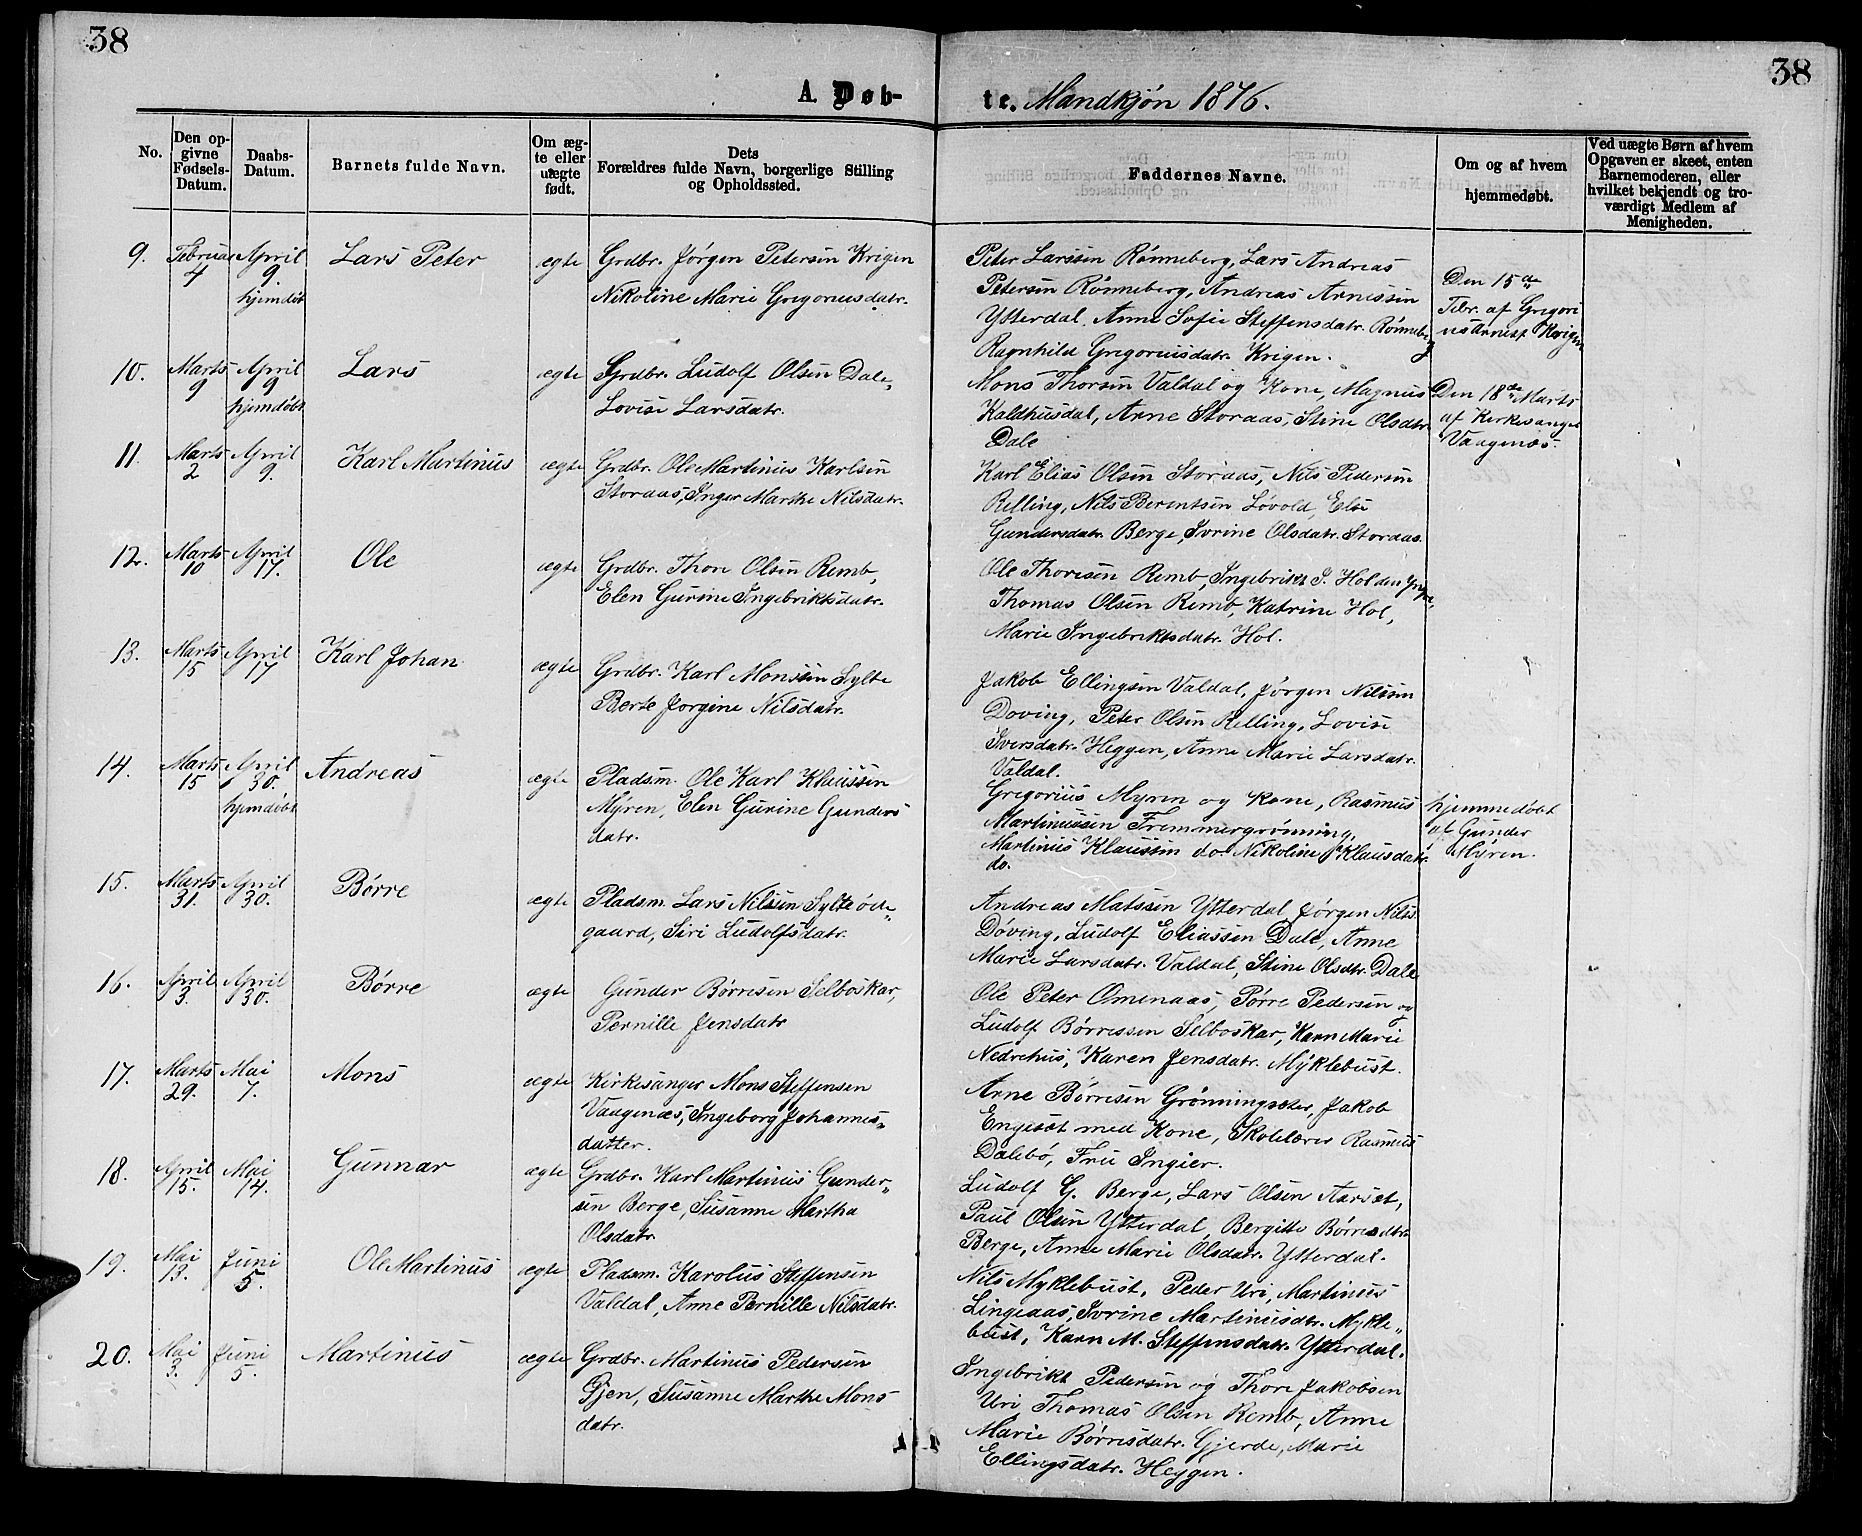 38
38
A. Døb-
te. Mandkjøn 1876.
No.
Den op-
givne
Fødsels-
Datum.
Daabs-
Datum.
Barnets fulde Navn.
Om æg-
te eller
uægte
født.
Dets
Forældres fulde Navn, borgerlige Stilling
og Opholdssted.
Faddernes Navne.
Om og af hvem
hjemmedøbt.
Ved uægte Børn af hvem
Opgaven er skeet, enten
Barnemoderen, eller
hvilket bekjendt og tro-
værdigt Medlem af
Menigheden.
9.
Februar
4
April
9.
hjemdøbt
Lars Peter
ægte
Grdbr. Jørgen Petersen Krigen
Nikoline Marie Gregoriusdatr.
Peter Larssen Rønneberg, Lars Andreas
Petersen Rønneberg, Andreas Arnessen
Ytterdal, Anne Sofie Steffensdatr. Rønneberg
Ragnhild Gregoriusdatr. Krigen.
Den 15de
Febr. af Gregori
us Arnesf. Krigen
10.
Marts
9
April
9
hjemdøbt
Lars
ægte
Grdbr. Ludolf Olsen Dale,
Lovise Larsdatr.
Mons Thorsen Valdal og Kone, Magnus
Kaldhusdal, Arne Storaas, Stine Olsdtr.
Dale
Den 18de Marts
af Kirkesanger
Vaagenæs.
11.
Marts
2
April
9.
Karl Martinus
ægte
Grdbr. Ole Martinus Karlsen
Storaas, Inger Marthe Nilsdatr.
Karl Elias Olsen Storaas, Nils Pedersen
Relling, Nils Berentsen Løvold, Else
Gundersdatr. Berge, Ivrine Olsdatr. Storaas.
12.
Marts
10
April
17.
Ole
ægte
Grdbr. Thore Olsen Remb,
Elen Gurine Ingebriktsdatr.
Ole Thoresen Remb, Ingebrikt I. Hol den yngre,
Thomas Olsen Remb, Katrine Hol,
Marie Ingebriktsdatr. Hol.
13.
Marts
15
April
17
Karl Johan
ægte
Grdbr. Karl Monssen Sylte
Berte Jørgine Nilsdatr.
Jakob Ellingsen Valdal, Jørgen Nilssen
Døving, Peter Olsen Relling, Lovise
Iversdatr. Heggen, Anne Marie Larsdatr.
Valdal.
14.
Marts
15
April
30.
hjemdøbt
Andreas
ægte
Pladsm. Ole Karl Klaussen
Myren, Elen Gurine Gunders
datr.
Gregorius Myren og Kone, Rasmus
Martinussen Fremmergrønning,
Martinus Klaussen do. Nikoline Klausdatr.
do.
hjemmedøbt
af Gunder
Myren.
15.
Marts
31.
April
30.
Børre
ægte
Pladsm. Lars Nilssen Sylteøde-
gaard, Siri Ludolfsdatr.
Andreas Matssen Ytterdal, Jørgen Nils.
Døving, Ludolf Eliassen Dale, Anne
Marie Larsdatr. Valdal, Stine Olsdtr. Dale
16.
April
3.
April
30.
Børre
ægte
Gunder Børresen Selboskar,
Pernille Jensdatr
Ole Peter Omenaas, Børre Pedersen og
Ludolf Børressen Selboskar, Karn Marie
Nedrehus, Karen Jensdatr. Myklebust.
17.
Marts
29.
Mai
7.
Mons
ægte
Kirkesanger Mons Steffensen
Vaagenæs, Ingeborg Johannes-
datter.
Arne Børresen Grønningsæter, Jakob
Engeset med Kone, Skolelærer Rasmus
Dalebø, Fru Ingier.
18.
April
15.
Mai
14.
Gunnar
ægte
Grdbr. Karl Martinus Gunder-
sen Berge, Susanne Martha
Olsdatr.
Ludolf G. Berge, Lars Olsen Aarset,
Paul Olsen Ytterdal, Bergitte Børresdtr.
Berge, Anne Marie Olsdatr. Ytterdal.
19.
Mai
13.
Juni
5.
Ole Martinus
ægte
Pladsm. Karolus Steffensen
Valdal, Anne Pernille Nilsdatr.
Nils Myklebust, Peder Uri, Martinus
Lingeaas, Ivrine Martinusdtr. Mykle-
bust, Karn M. Steffensdatr. Ytterdal.
20.
Mai
3.
Juni
5.
Martinus
ægte
Grdbr. Martinus Pedersen
Øjen, Susanne Marthe Mons
datr.
Ingebrikt Pedersen og Thore Jakobsen
Uri, Thomas Olsen Remb, Anne
Marie Børresdatr. Gjerde, Marie
Ellingsdatr. Heggen.